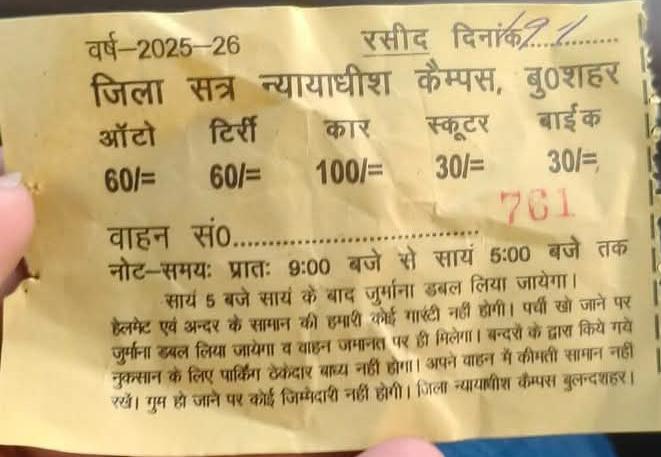 वर्ष-2025-26 रसीद दिनांक 19 1
जिला सत्र न्यायाधीश कैम्पस, बु0शहर
ऑटो टिर्री कार स्कूटर बाईक
60/= 60/= 100/= 30/= 30/=
761
वाहन सं0........................................
नोट-समयः प्रातः 9:00 बजे से सायं 5:00 बजे तक
सायं 5 बजे सायं के बाद जुर्माना डबल लिया जायेगा।
हैलमेट एवं अन्दर के सामान की हमारी कोई गारंटी नहीं होगी। पर्ची खो जाने पर
जुर्माना डबल लिया जायेगा व वाहन जमानत पर ही मिलेगा। बन्दरों के द्वारा किये गये
नुकसान के लिए पार्किंग ठेकेदार बाध्य नहीं होगा। अपने वाहन में कीमती सामान नहीं
रखें। गुम हो जाने पर कोई जिम्मेदारी नहीं होगी। जिला न्यायाधीश कैम्पस बुलन्दशहर।